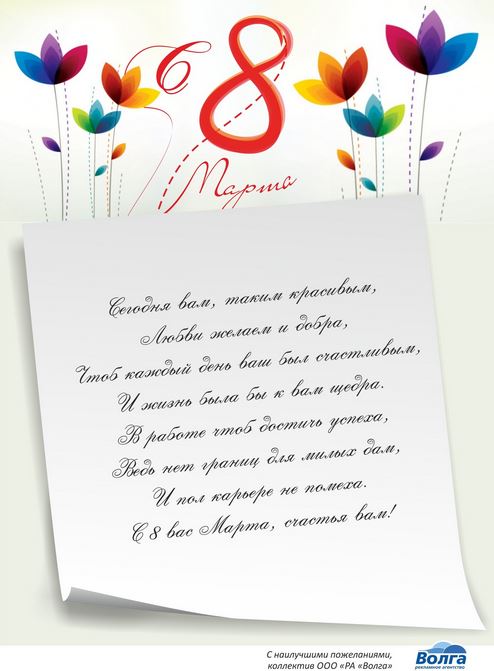 С 8
Марта
Сегодня вам, таким красивым,
Любви желаем и добра,
Чтоб каждый день ваш был счастливым,
И жизнь была бы к вам щедра.
В работе чтоб достичь успеха,
Ведь нет границ для милых дам,
И пол карьере не помеха.
С 8 вас Марта, счастья вам!
С наилучшими пожеланиями,
коллектив ООО «РА «Волга»
Волга
рекламное агентство